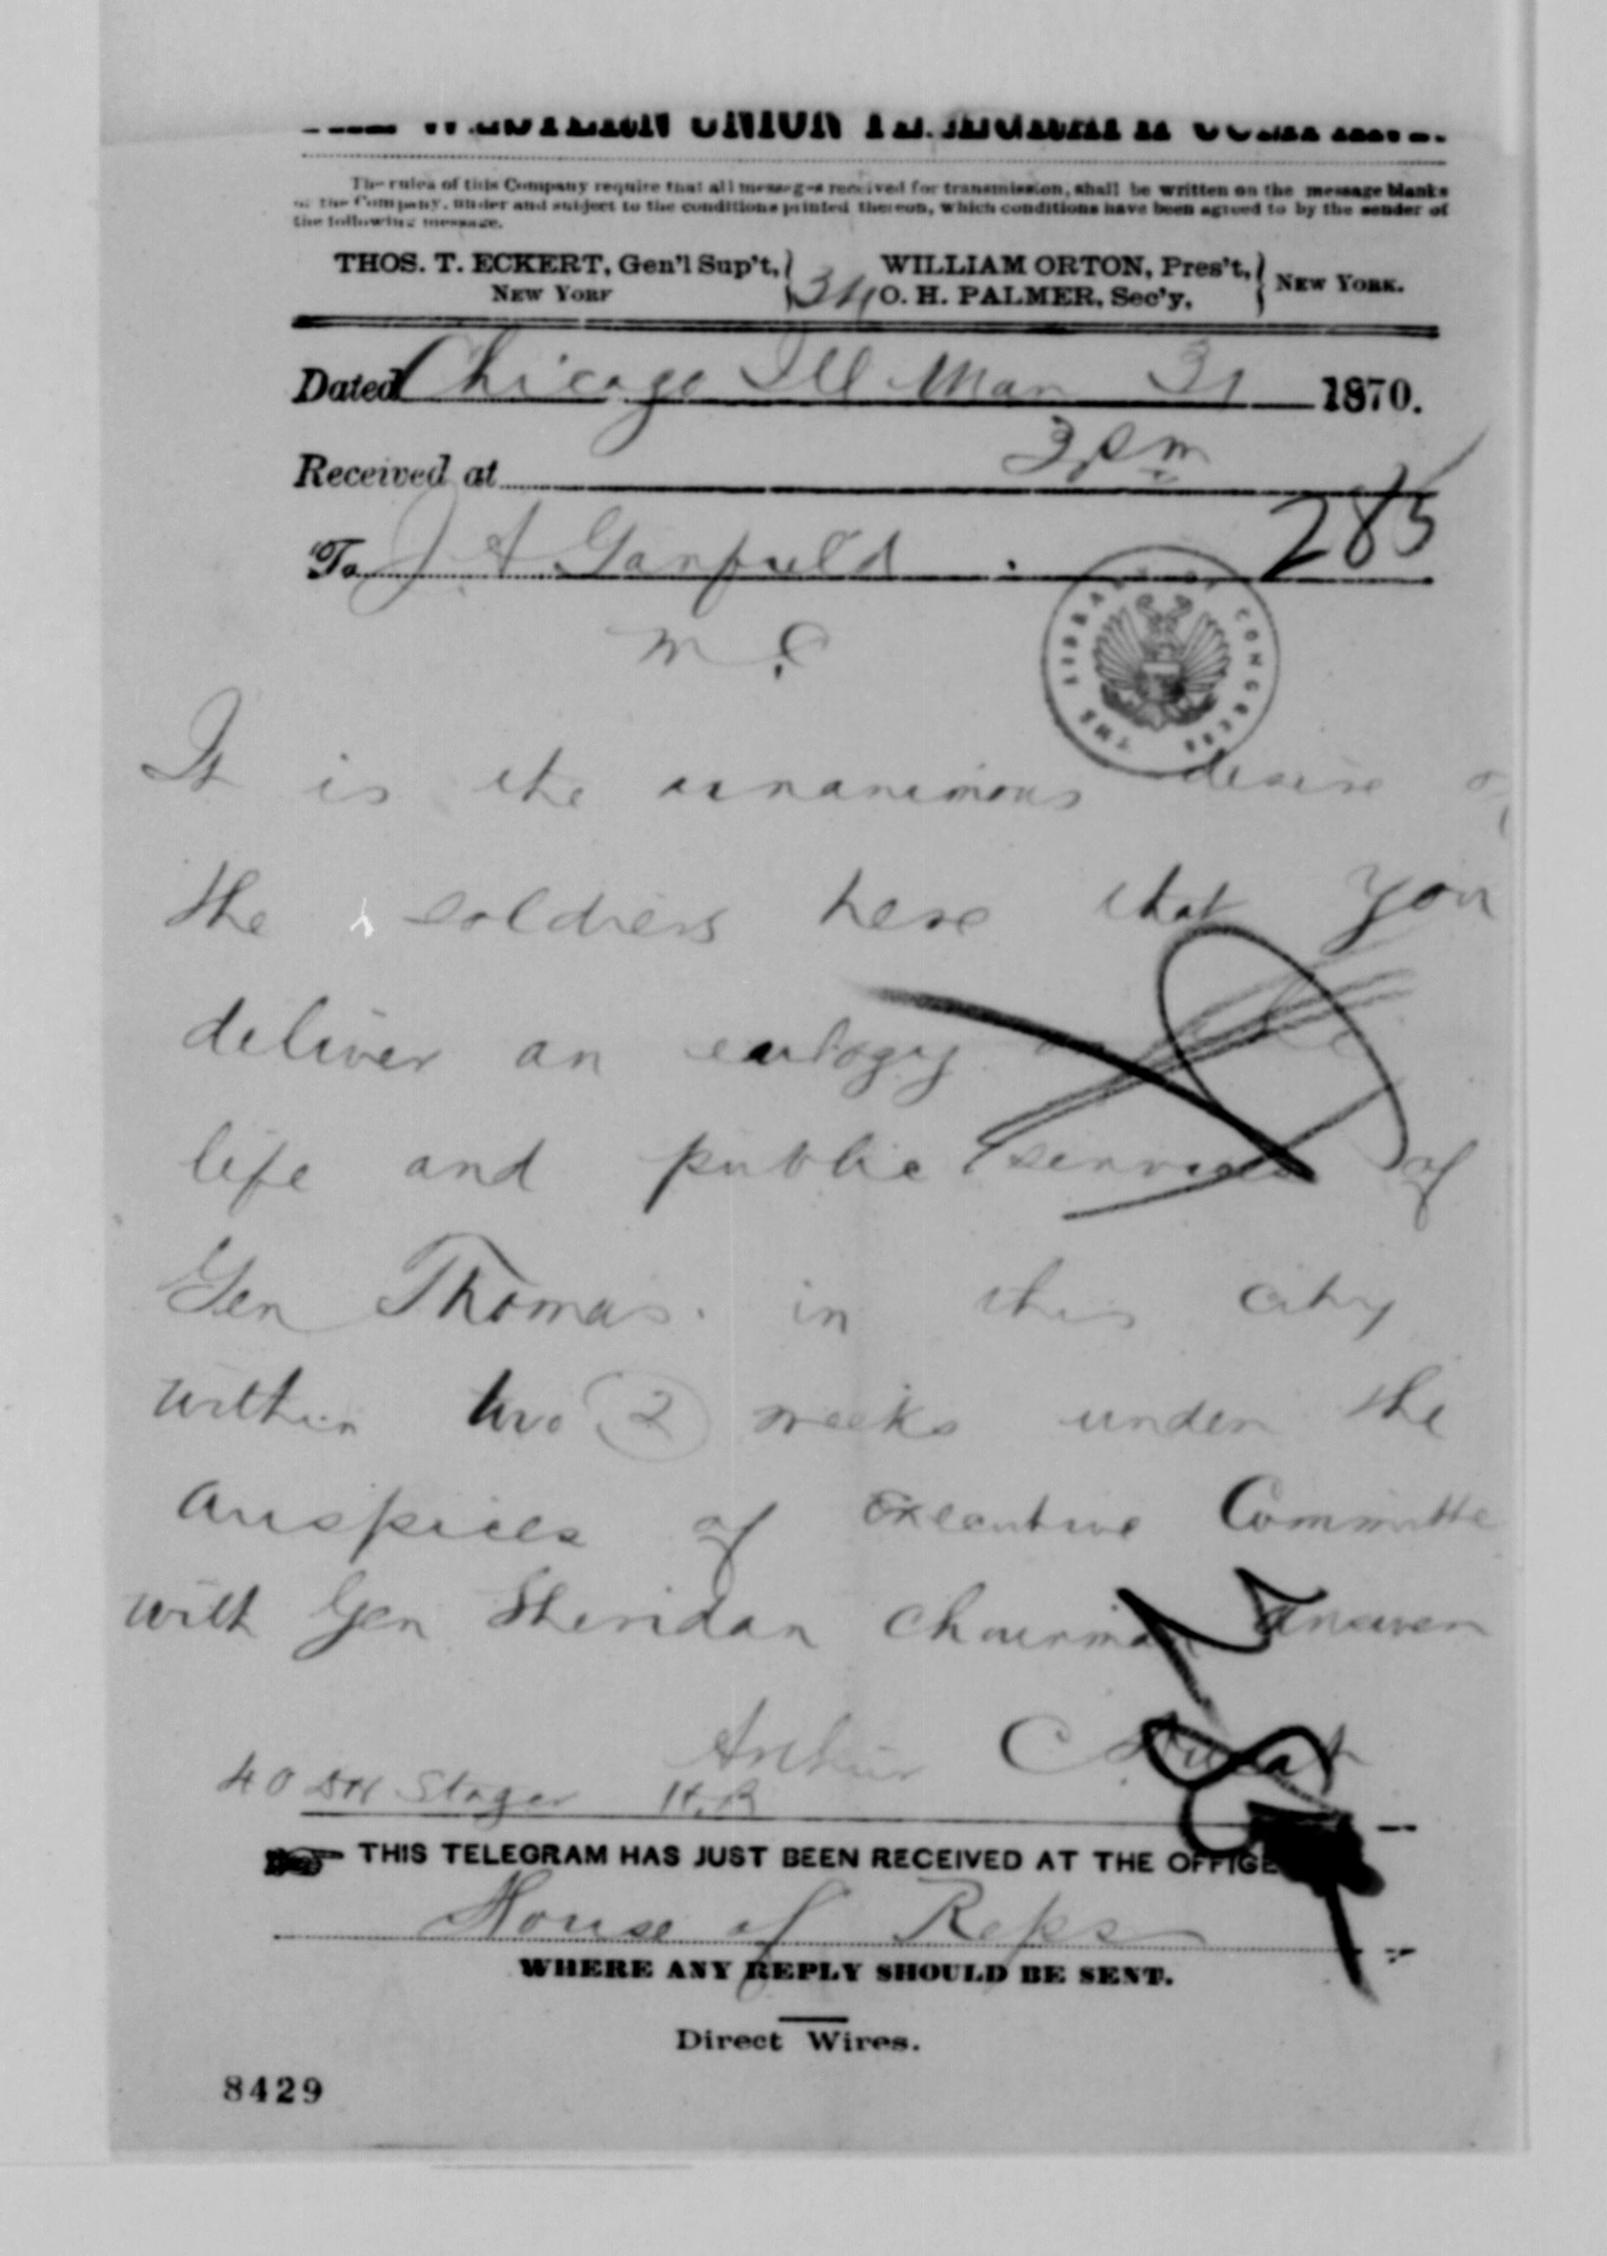 THE WESTERN UNION TELEGRAPH COMPANY.
The rules of this Company require that all messages received for transmission, shall be written on the message blanks
of the Company, under and subject to the conditions printed thereon, which conditions have been agreed to by the sender of
the following message.
THOS. T. ECKERT, Gen'l Sup't, WILLIAM ORTON, Pres't,
NEW YORK 34 O. H. PALMER, Sec'y, NEW YORK.
Dated Chicago Ill Mar 31 1870.
Received at 3 pm
To J. A Garfield . 285
M. C
THE LIBRARY OF CONGRESS
It is the unanimous desire of
the soldiers here that you
deliver an eulogy on the
life and public services of
Gen Thomas. in this city
within two (2) weeks under the
auspices of Executive Committe
with Gen Sheridan chairman answer
Arthur C
40 DH Stager H.R
THIS TELEGRAM HAS JUST BEEN RECEIVED AT THE OFFICE
House of Reps
WHERE ANY REPLY SHOULD BE SENT.
Direct Wires.
8429